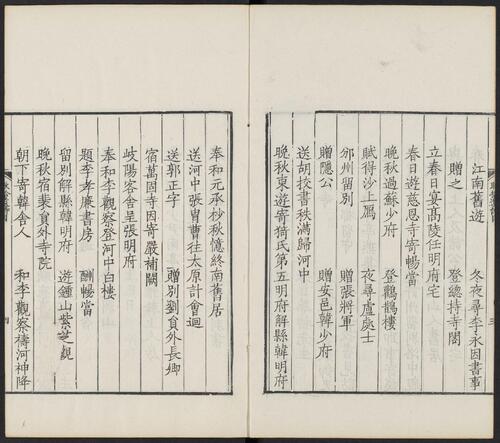 江南舊遊　冬夜尋李永因書事
贈之　登總持寺閣
立春日宴高陵任明府宅
春日遊慈恩寺寄暢當
晚秋過蘇少府　登鸛鵲樓
賦得沙上鴈　夜尋盧處士
邠州留別　贈張將軍
贈隱公　贈安邑韓少府
送胡挍書秩滿歸河中
晚秋東遊寄猗氏第五明府解縣韓明府
奉和元承杪秋憶終南舊居
送河中張胄曹往太原計會迴
送郭正字　贈別劉員外長卿
宿萬固寺因寄嚴補闕
岐陽客舍呈張明府
奉和李觀察登河中白樓
題李孝廉書房　酬暢當
留別解縣韓明府　遊鍾山紫芝觀
晚秋宿裴員外寺院
朝下寄韓舍人　和李觀察禱河神降